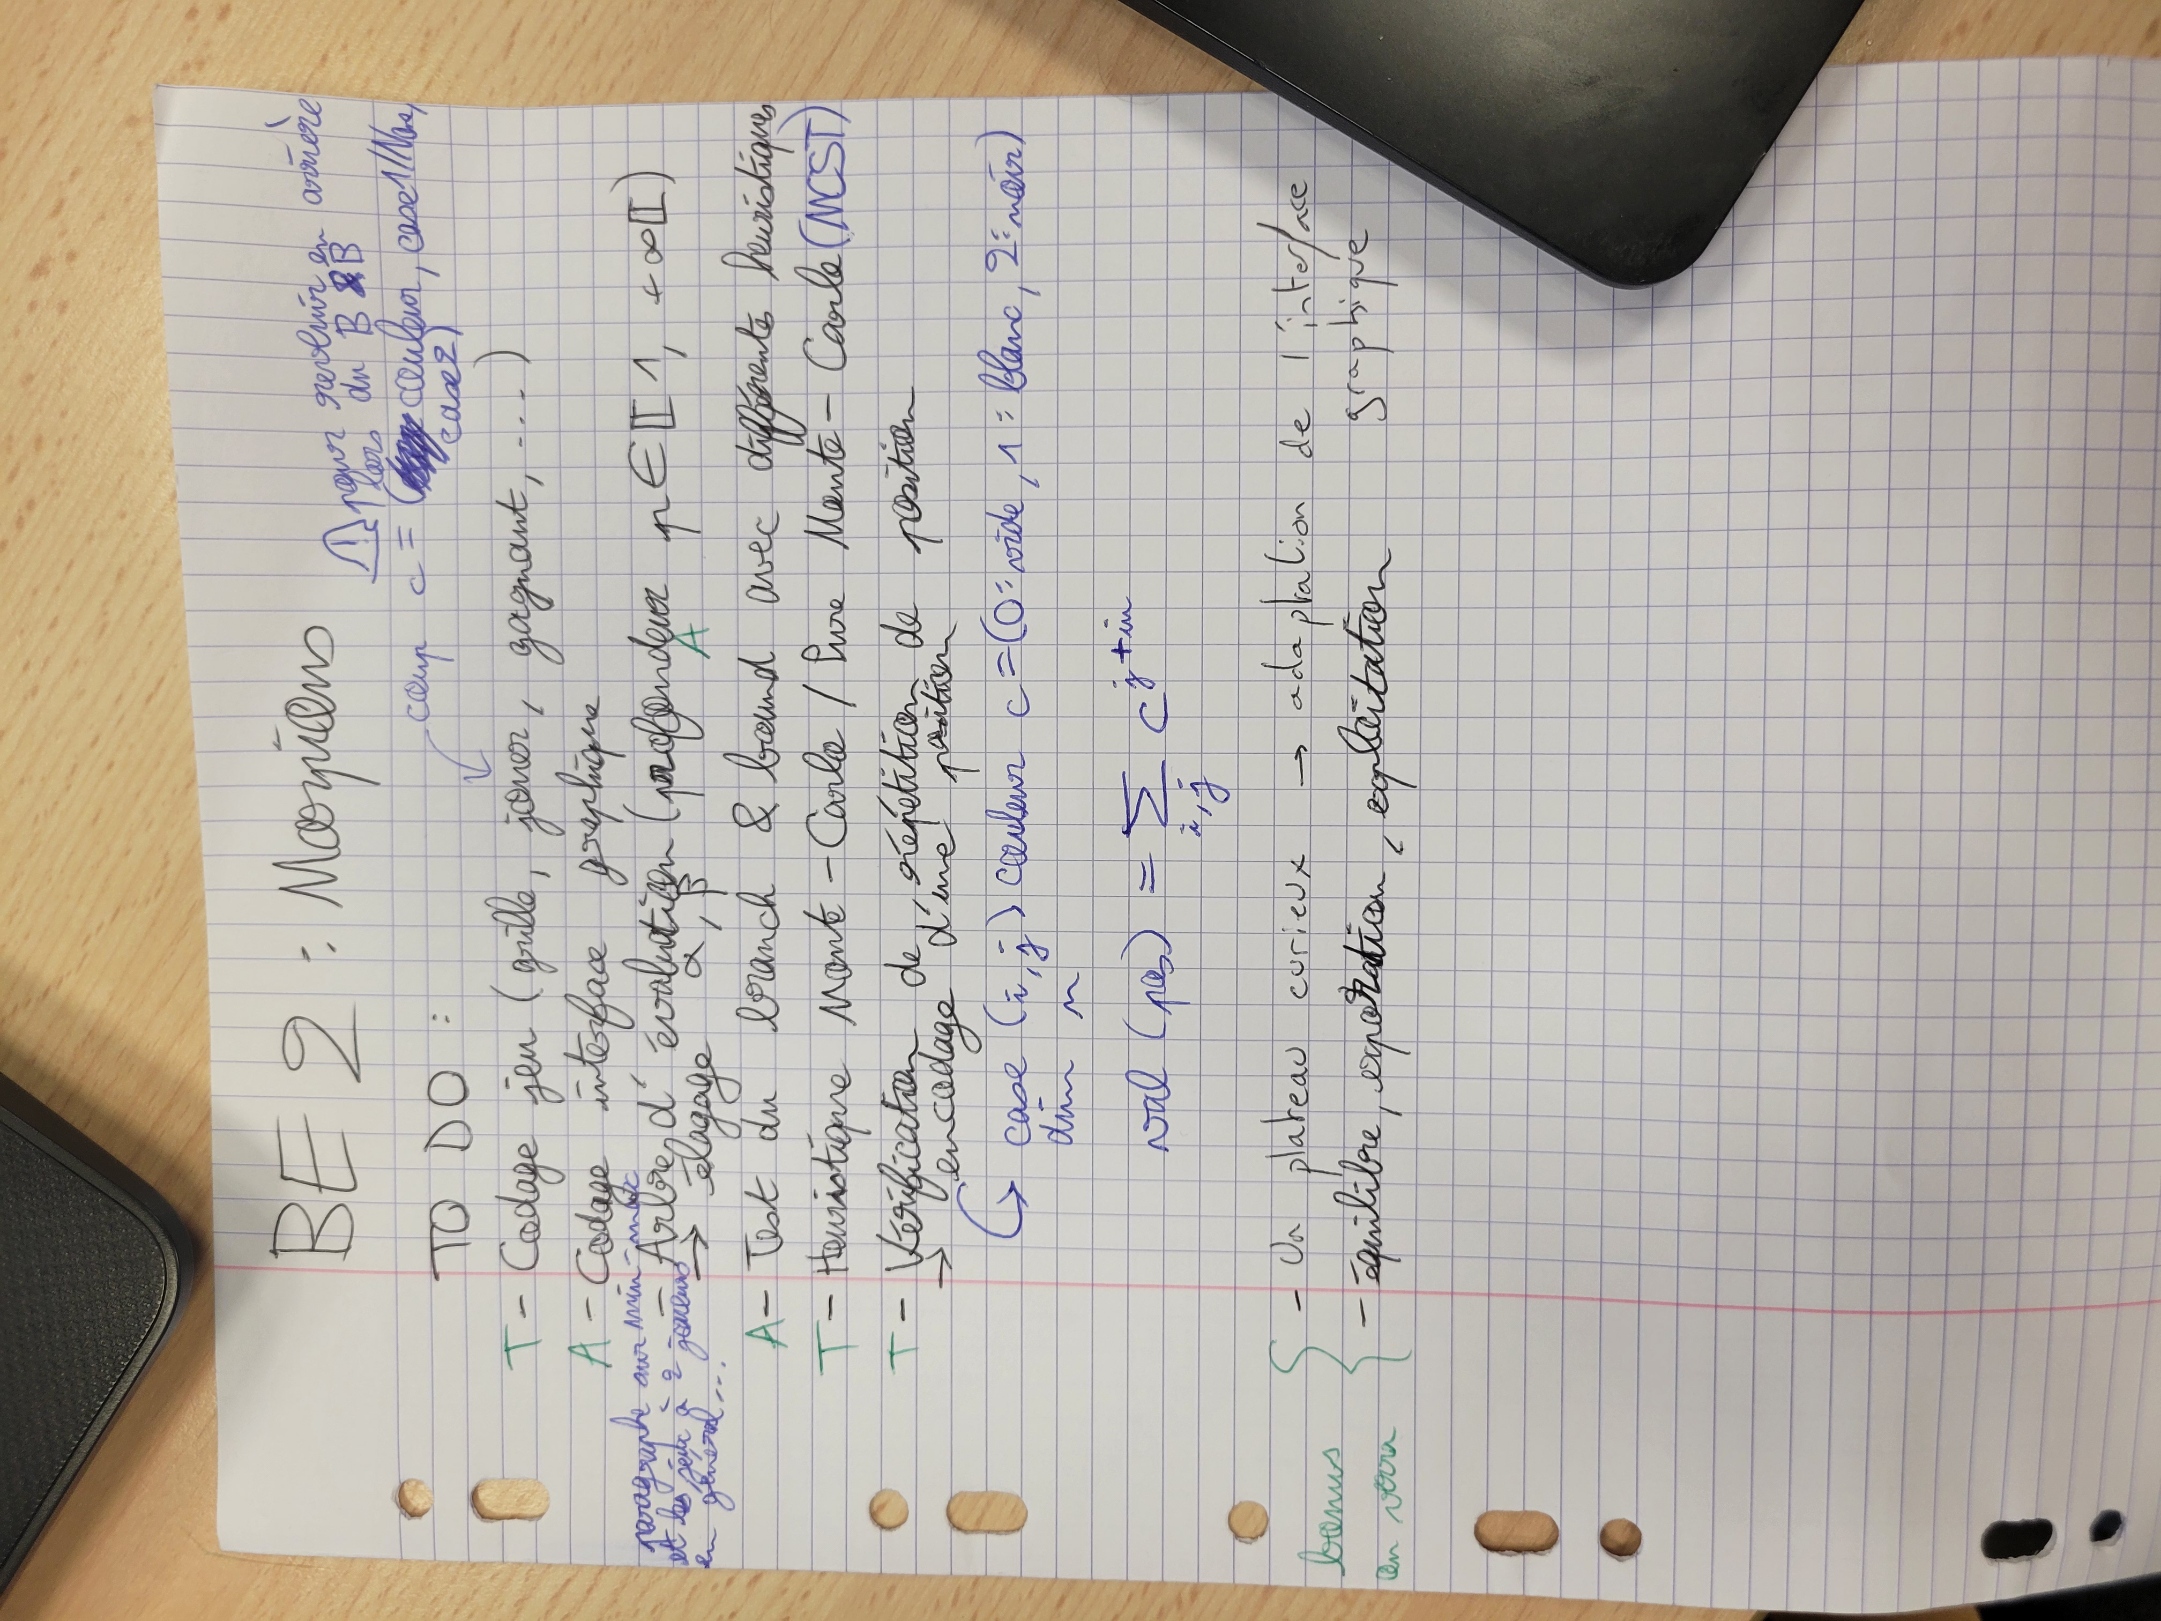 BE 2 : Morpions
⚠ pour revenir en arrière
lors du B&B
coup c = (couleur, case1/None,
case2)
TO DO :
T - Codage jeu (grille, jouer, gagnant, ...)
A - Codage interface graphique
paragraphe sur min-max
et les jeux à 2 joueurs
en général...
- Arbre d'évaluation (profondeur p ∈ ⟦1, +∞⟦)
→ élagage α, β A
A - Test du branch & bound avec différentes heuristiques
T - Heuristique Monte-Carlo / Pure Monte-Carlo (MCST)
T - Vérification de répétition de position
→ encodage d'une position
↳ case (i,j) couleur c = (0:vide, 1:blanc, 2:noir)
dim n
val (pos) = Σ c^{j+in}
i,j
bonus
on verra
- Un plateau curieux → adaptation de l'interface
graphique
- équilibre, exporation, exploitation